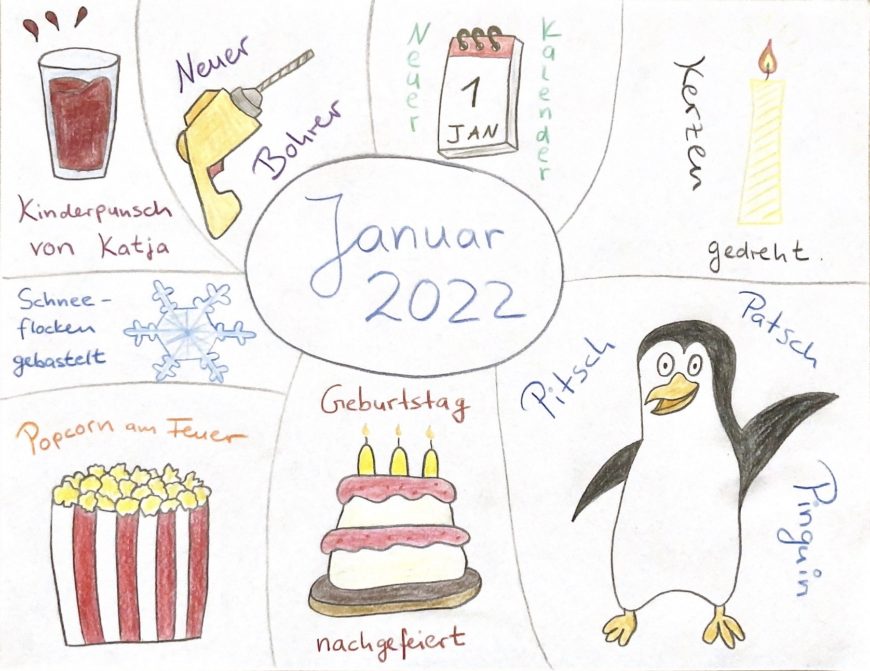 Januar
2022
Kinderpunsch
von Katja
Neuer
Bohrer
Neuer
1
JAN
Kalender
Kerzen
gedreht.
Schnee-
flocken
gebastelt
Popcorn am Feuer
Geburtstag
nachgefeiert
Pitsch
Patsch
Pinguin